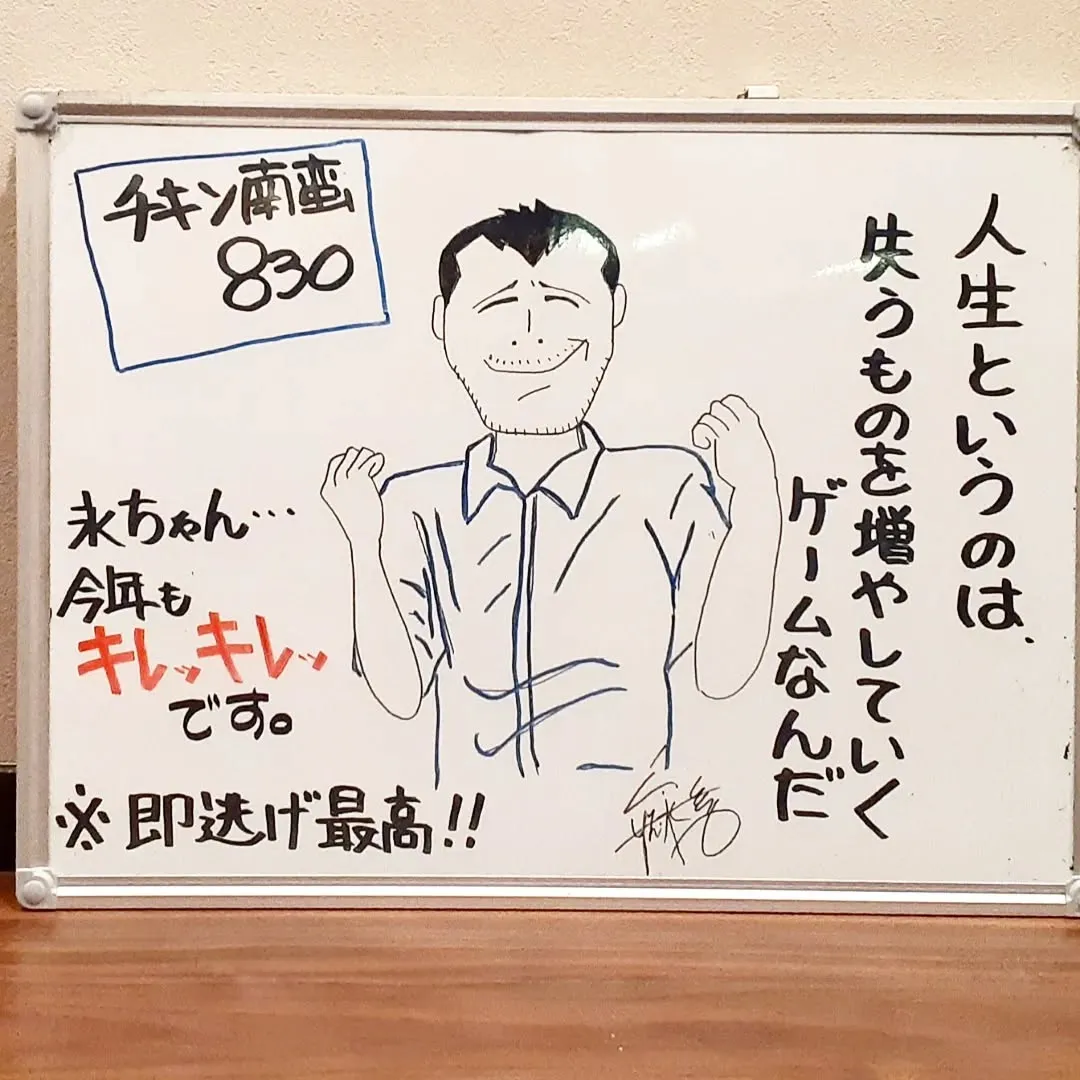 チキン南蛮
830
人生というのは、
失うものを増やしていく
ゲームなんだ
永ちゃん…
今年も
キレッキレッ
です。
※即逃げ最高!!